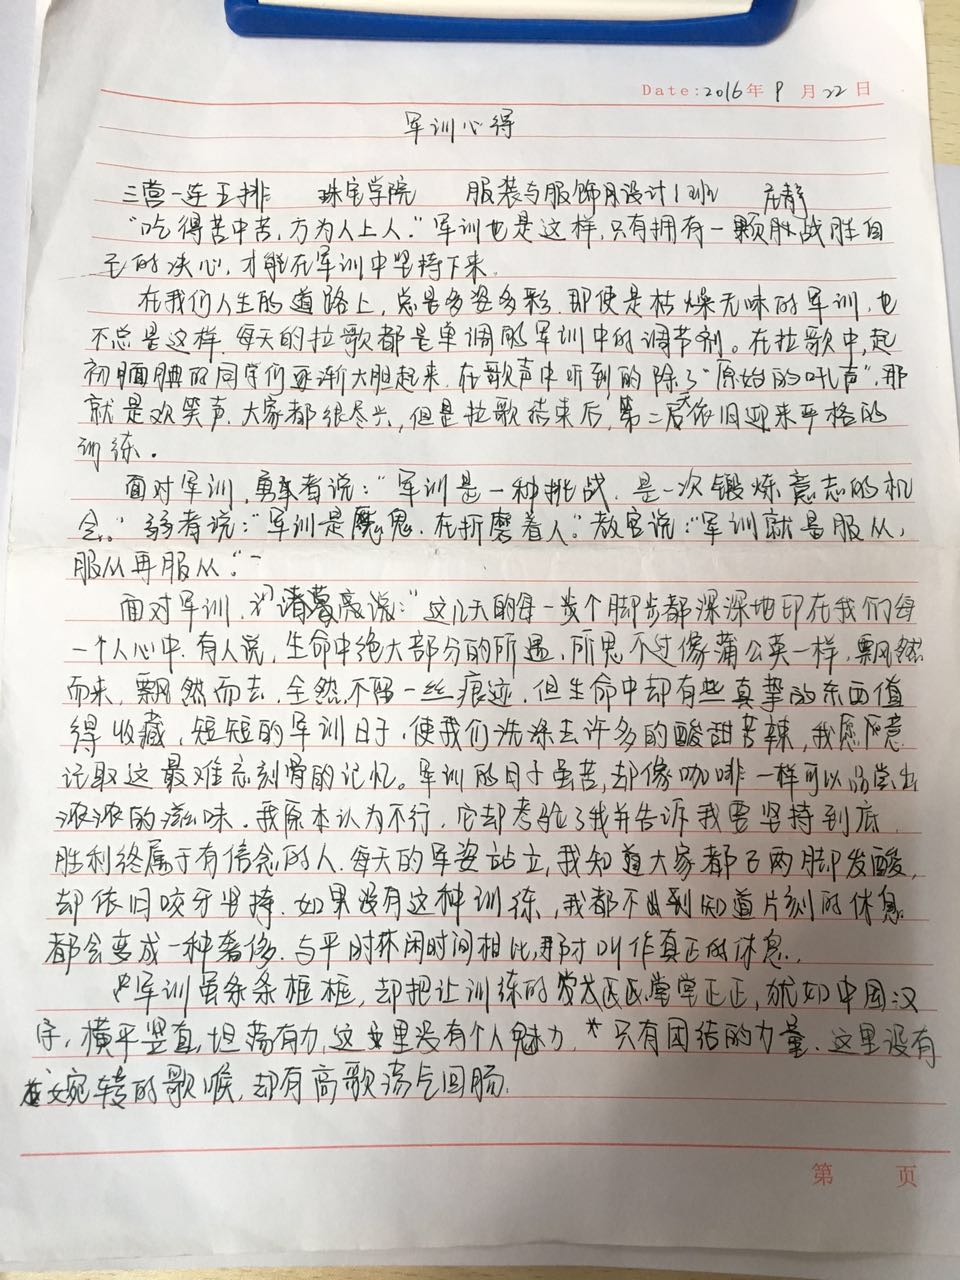 Date:2016年9月22日
军训心得
三营一连五排 珠宝学院 服装与服饰设计1班 庄静
"吃得苦中苦,方为人上人."军训也是这样,只有拥有一颗战胜自
己的决心,才能在军训中坚持下来.
在我们人生的道路上,总是多姿多彩,即使是枯燥无味的军训,也
不总是这样,每天的拉歌都是单调的军训中的调节剂。在拉歌中,起
初腼腆的同学们逐渐大胆起来,在歌声中听到的除了"原始的吼声",那
就是欢笑声,大家都很尽兴,但是拉歌结束后,第二天依旧迎来严格的
训练.
面对军训,勇者说:"军训是一种挑战,是一次锻炼意志的机
会."弱者说:"军训是魔鬼,在折磨着人."教官说:"军训就是服从,
服从再服从."
面对军训,诸葛亮说:"这几天的每一个脚步都深深地印在我们每
一个人心中.有人说,生命中绝大部分的所遇,所思不过像蒲公英一样,飘然
而来,飘然而去,全然不留一丝痕迹,但生命中却有些真挚的东西值
得收藏,短短的军训日子,使我们洗涤去许多的酸甜苦辣,我愿意
记取这最难忘刻骨的记忆。军训的日子虽苦,却像咖啡一样可以品尝出
浓浓的滋味.我原本认为不行,它却考验了我并告诉我要坚持到底,
胜利终属于有信念的人.每天的军姿站立,我知道大家都已两脚发酸,
却依旧咬牙坚持.如果没有这种训练,我都不知道片刻的休息
都会变成一种奢侈.与平时休闲时间相比,那才叫作真正的休息.
军训虽条条框框,却把让训练的堂堂正正,犹如中国汉
字,横平竖直,坦荡有力,这里没有个人魅力,只有团结的力量.这里没有
婉转的歌喉,却有高歌荡气回肠.
第 页